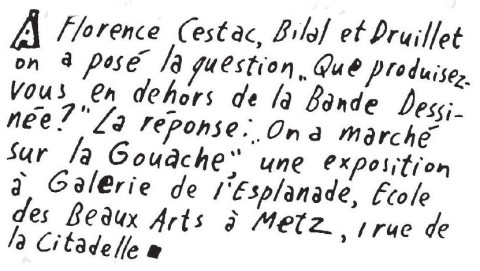 A Florence Cestac, Bilal et Druillet
on a posé la question „Que produisez-
vous en dehors de la Bande Dessi-
née?" La réponse: „On a marché
sur la Gouache", une exposition
à Galerie de l'Esplanade, Ecole
des Beaux Arts à Metz, 1 rue de
la Citadelle ▪